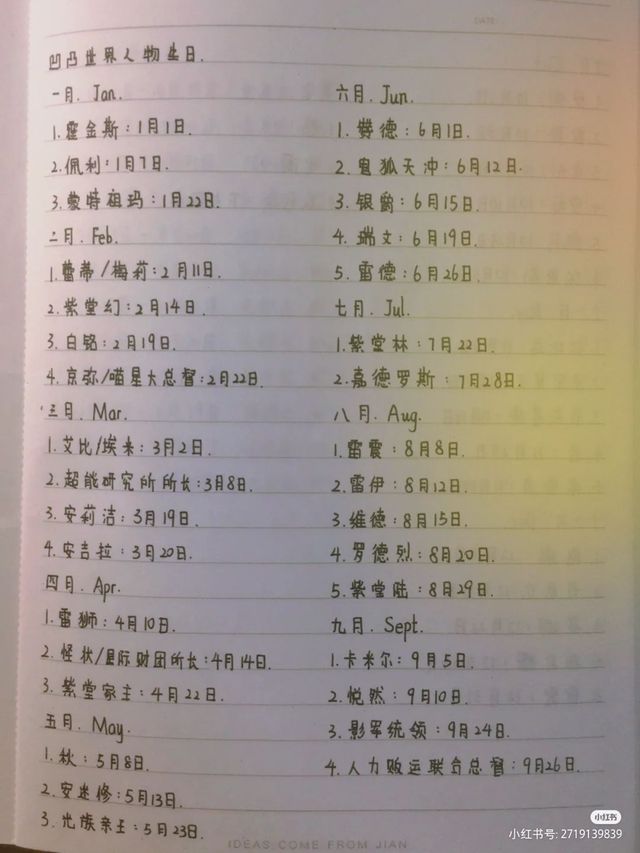 DATE
凹凸世界人物生日.
一月. Jan.
1.霍金斯:1月1日.
2.佩利:1月7日.
3.蒙特祖玛:1月22日.
二月. Feb.
1.蕾蒂/梅莉:2月11日.
2.紫堂幻:2月14日.
3.白铭:2月19日.
4.京弥/喵星大总督:2月22日.
三月. Mar.
1.艾比/埃米:3月2日.
2.超能研究所所长:3月8日.
3.安莉洁:3月19日.
4.安吉拉:3月20日.
四月. Apr.
1.雷狮:4月10日.
2.怪状/星际财团所长:4月14日.
3.紫堂家主:4月22日.
五月. May.
1.秋:5月8日.
2.安迷修:5月13日.
3.光族亲王:5月23日.
六月. Jun.
1.德:6月1日.
2.鬼狐天冲:6月12日.
3.银爵:6月15日.
4.瑞文:6月19日.
5.雷德:6月26日.
七月. Jul.
1.紫堂林:7月22日.
2.嘉德罗斯:7月28日.
八月. Aug.
1.雷震:8月8日.
2.雷伊:8月12日.
3.维德:8月15日.
4.罗德烈:8月20日.
5.紫堂陆:8月29日.
九月. Sept.
1.卡米尔:9月5日.
2.悦然:9月10日.
3.影军统领:9月24日.
4.人力贩运联合总督:9月26日.
IDEAS COME FROM JIAN
小红书
小红书号: 2719139839